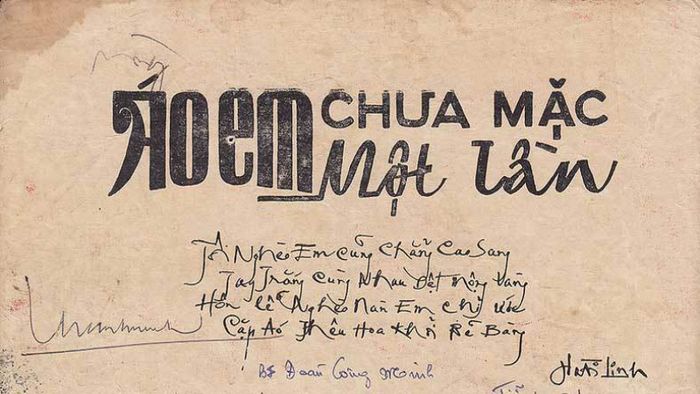 Áo em CHƯA MẶC
Một lần
Tôi Nghèo Em Cũng Chẳng Cao Sang
Tay Trắng Cùng Nhau Dệt Mộng Vàng
Hôn lễ Nghèo Nàn Em Chỉ Ước
Cặp Áo Thêu Hoa Khỏi Bẽ Bàng
Hoài Linh
BS Đoàn Công Minh